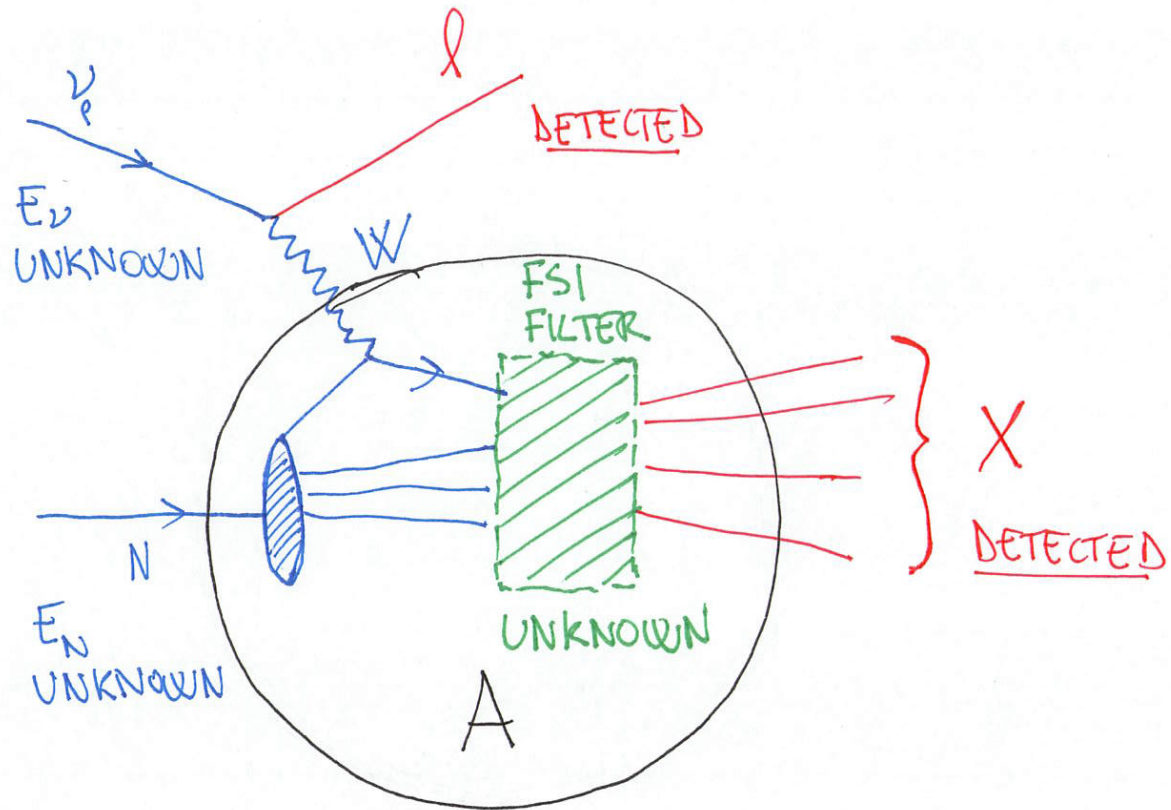 ν_ℓ
ℓ
DETECTED
E_ν
UNKNOWN
W
FSI
FILTER
X
DETECTED
N
UNKNOWN
E_N
UNKNOWN
A